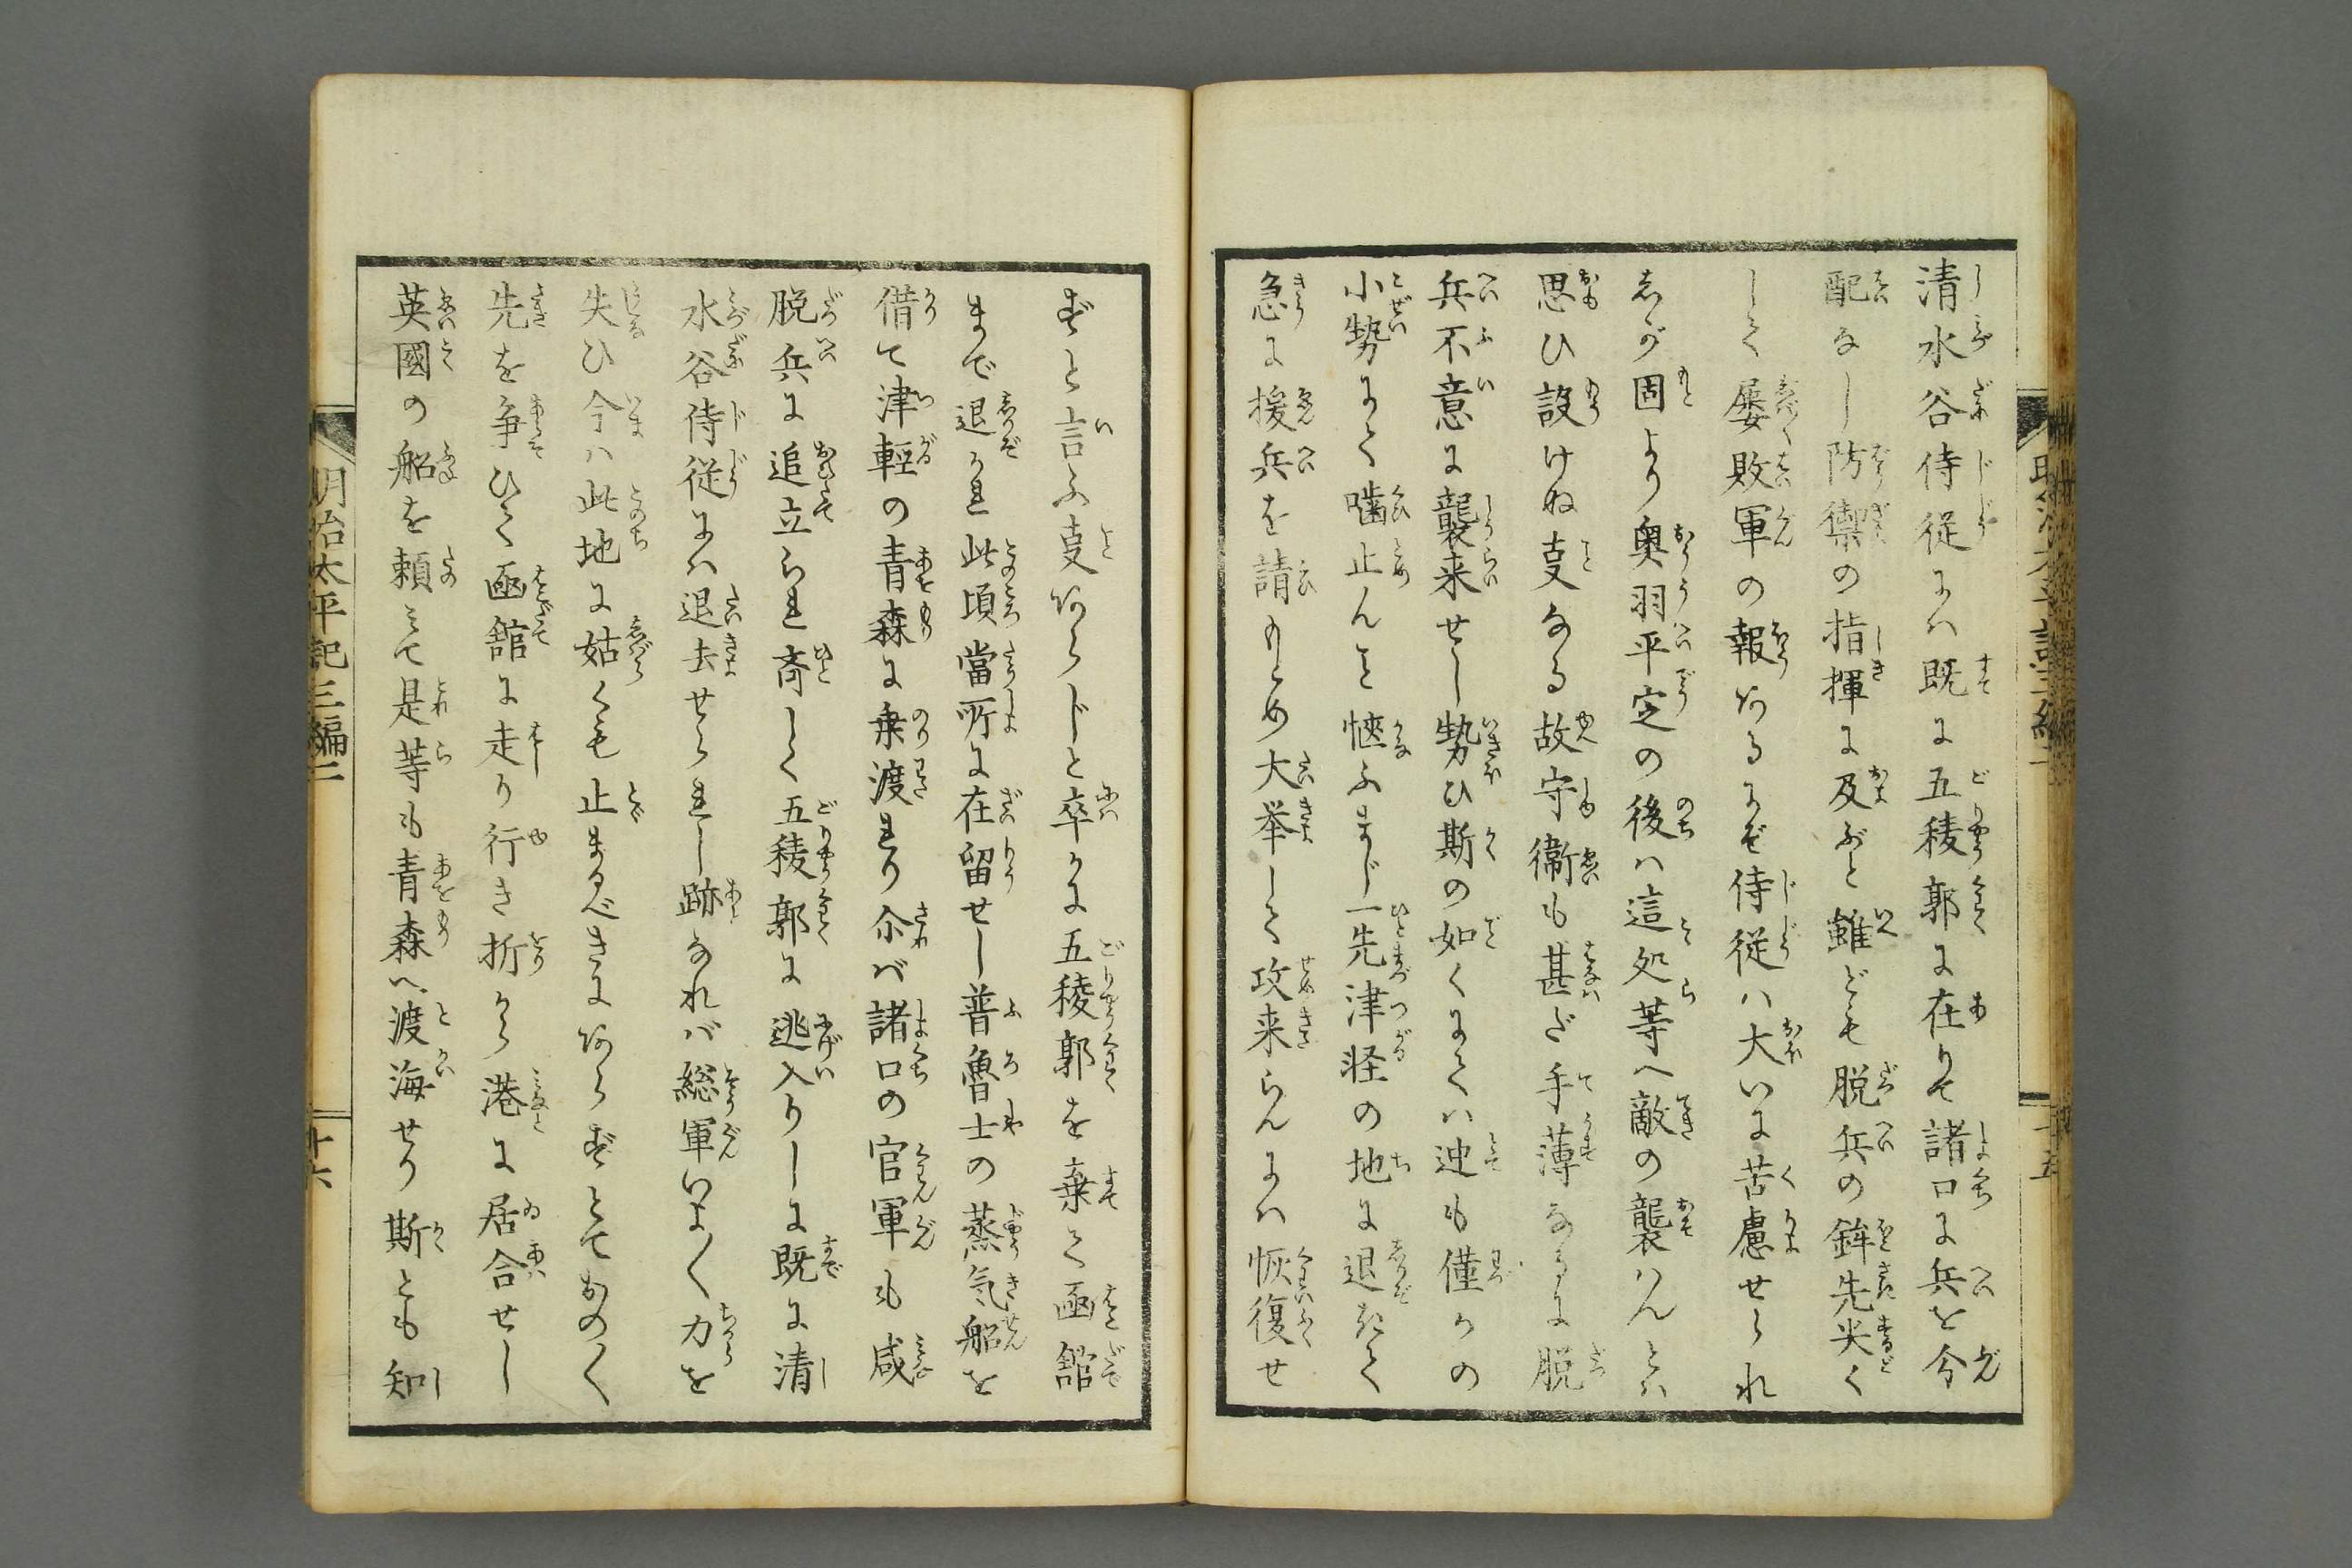 清水谷侍従にハ既に五稜郭に在りて諸口に兵を分
配なし防禦の指揮に及ぶと雖ども脱兵の鋒先尖く
して屡敗軍の報ずるにぞ侍従ハ大いに苦慮せられ
しが固より奥羽平定の後ハ這処等へ敵の襲ハんとハ
思ひ設けぬ叓なる故守衞も甚だ手薄なるに脱
兵不意に襲来せし勢ひ斯の如くにてハ迚も僅かの
小勢にて噛止んこと愜ふまじ一先津軽の地に退きて
急に援兵を請もとめ大挙して攻来らんにハ恢復せ
ずと言ふ叓あらじと卒かに五稜郭を棄て凾舘
まで退かれ此頃當所に在留せし普魯士の蒸気船を
借て津輕の青森に乗渡れり尒バ諸口の官軍も咸
脱兵に追立られ斉しく五稜郭に逃入りしに既に清
水谷侍従にハ退去せられし跡なれバ総軍いよ〳〵力を
失ひ今ハ此地に姑くも止まるべきにあらずとておの〳〵
先を争ひて凾舘に走り行き折から港に居合せし
英國の船を頼みて是等も青森へ渡海せり斯とも知
明治太平記三編二
十六